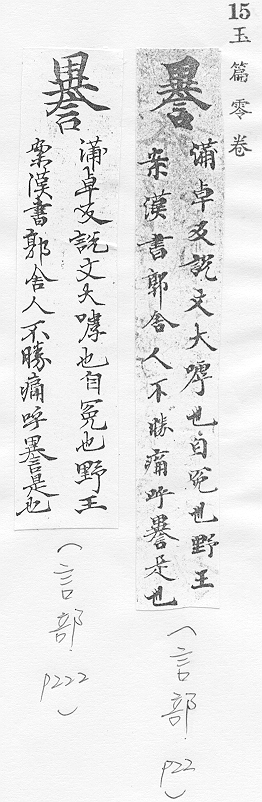 15 玉篇零卷
謈
蒲卓反說文大嘑也自冤也野王
案漢書郭舍人不勝痛呼謈是也
(言部 p22)
謈
蒲卓反說文大嘑也自冤也野王
案漢書郭舍人不勝痛呼謈是也
(言部 p222)